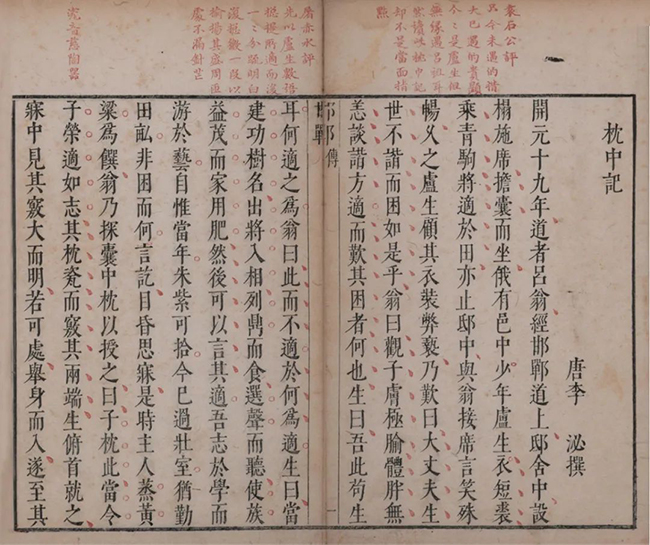 袁石公評
無緣遇呂祖耳
然讀此枕中記
却不是當面指
點
枕中記
唐李 泌撰
開元十九年道者呂翁經邯鄲道上邸舍中設
榻施席擔囊而坐俄有邑中少年盧生衣短裘
乘青駒將適於田亦止邸中與翁接席言笑殊
暢久之盧生顧其衣裝弊褻乃歎曰大丈夫生
世不諧而困如是乎翁曰觀子膚極腧體胖無
恙談諧方適而歎其困者何也生曰吾此苟生
邯鄲 傳
一
屠赤水評
處不漏針芒
耳何適之為翁曰此而不適於何為適生曰當
建功樹名出將入相列鼎而食選聲而聽使族
益茂而家用肥然後可以言其適吾志於學而
游於藝自惟當年朱紫可拾今已過壯室猶勤
田畝非困而何言訖目昏思寐是時主人蒸黃
粱為饌翁乃探囊中枕以授之曰子枕此當令
子榮適如志其枕瓷而竅其兩端生俯首就之
寐中見其竅大而明若可處舉身而入遂至其